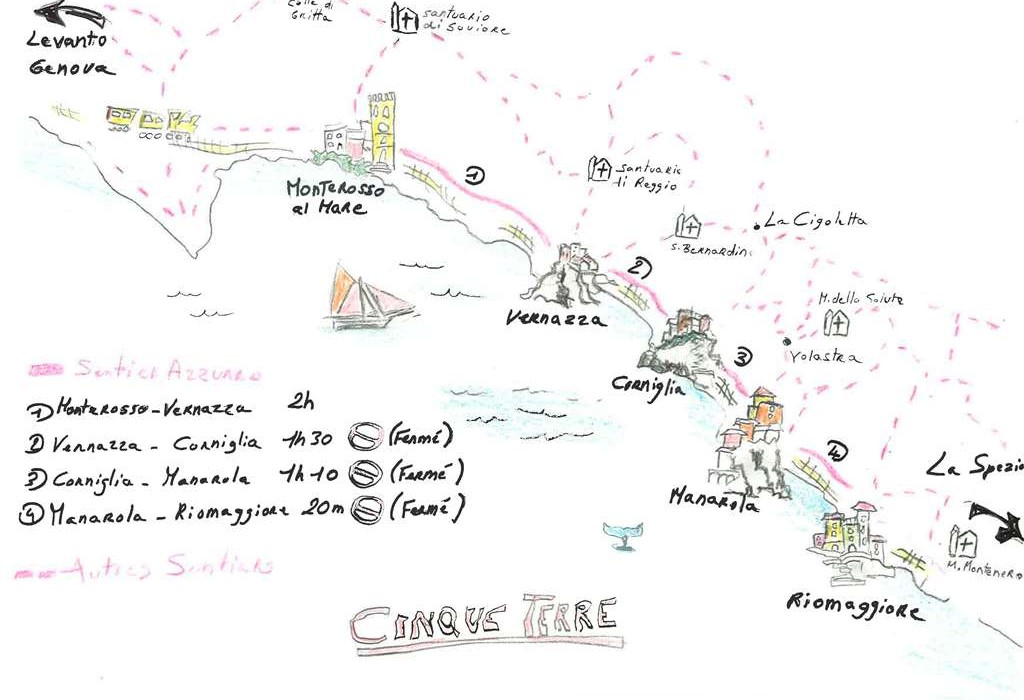 Colle di
Gritta
santuario
di Soviore
Levanto
Genova
Monterosso
al Mare
1
santuario
di Reggio
S. Bernardino
La Cigoletta
2
Vernazza
M. della Salute
Volastra
3
Corniglia
Sentier Azzurro
1 Monterosso-Vernazza 2h
2 Vernazza - Corniglia 1h30 (Fermé)
3 Corniglia - Manarola 1h10 (Fermé)
4 Manarola - Riomaggiore 20m (Fermé)
4
Manarola
La Spezia
M. Montenero
Autres Sentiers
Riomaggiore
Cinque Terre